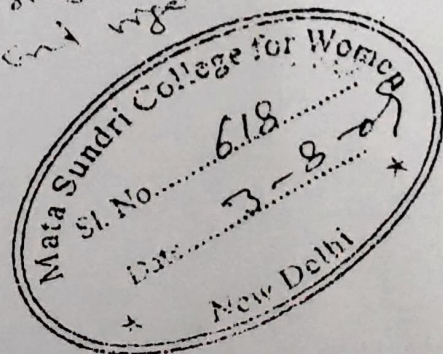 Mata Sundri College for Women
Sl. No. .......... 618 ..........
Date .......... 3-8-09
New Delhi